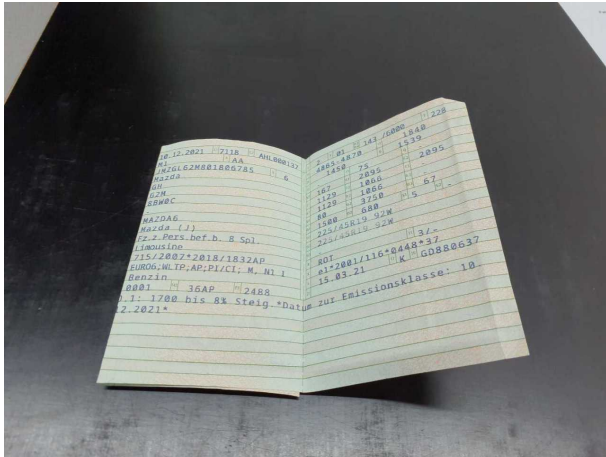 10.12.2021 7118 AHL800137
M1 AA
JMZGL62M801806785 6
Mazda
GH
G2M
8BW0C
-
MAZDA6
Mazda (J)
Fz.z.Pers.bef.b. 8 Spl.
Limousine
715/2007*2018/1832AP
EURO6;WLTP;AP;PI/CI; M, N1 I
Benzin
0001 36AP 2488
.1: 1700 bis 8% Steig.*Datum zur Emissionsklasse: 10.
12.2021*
2 01 143 /6000 228
4865-4870 1840
1450 1539
167 75 2095
1129 1066 2095
1129 1066
80 3750 5 67
1500 680 -
225/45R19 92W
225/45R19 92W
ROT 3/-
e1*2001/116*0448*37
15.03.21 K GD880637